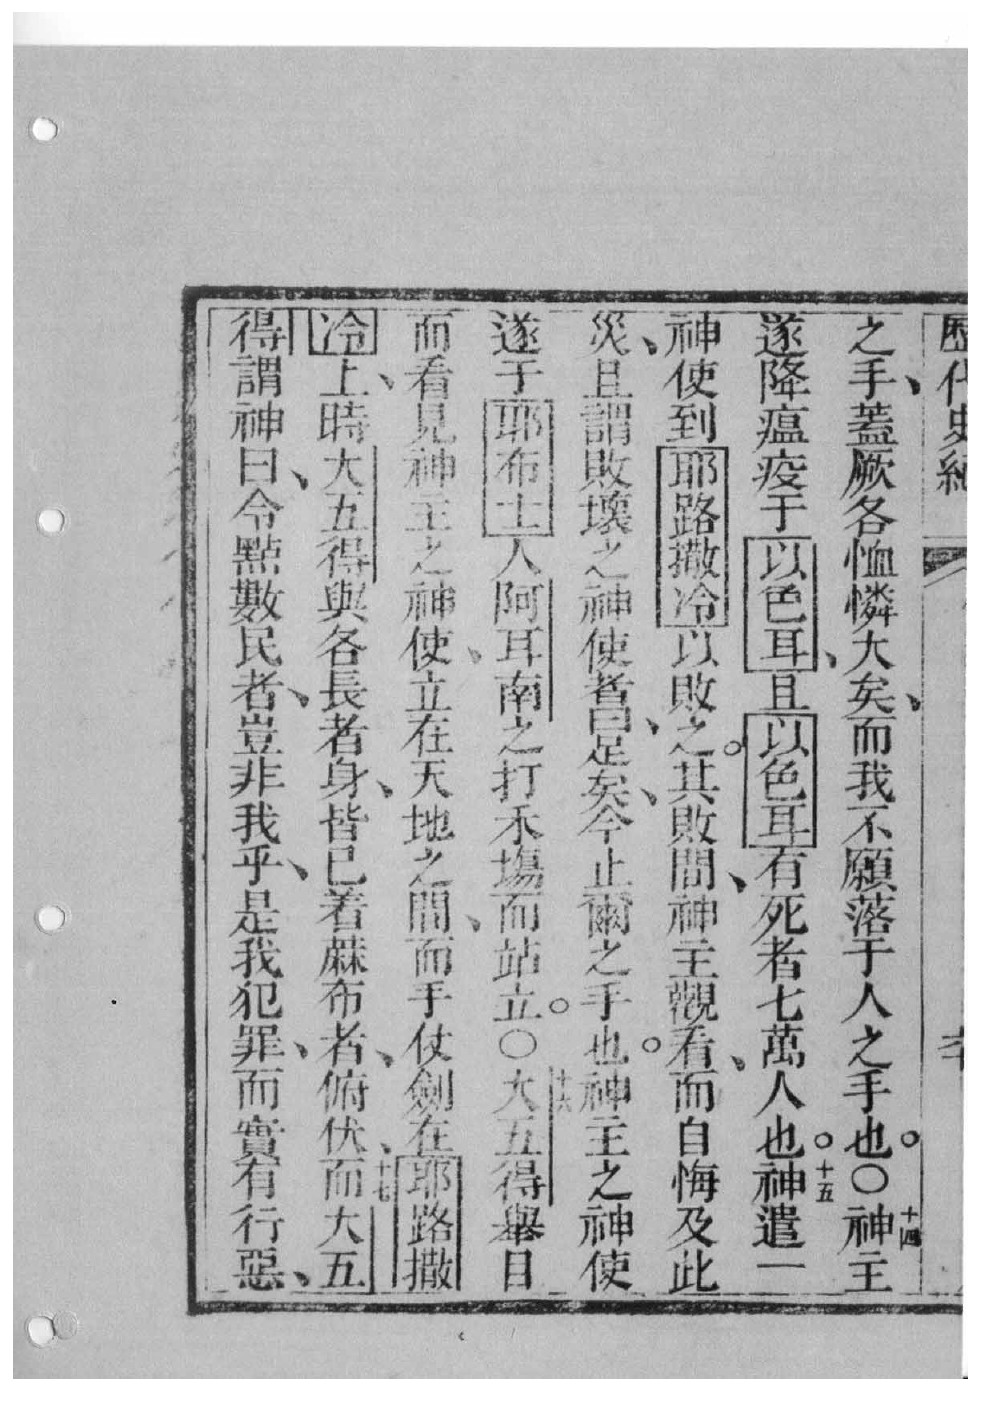 歴代史紀
之手、蓋厥各恤憐大矣、而我不願落于人之手也。〇十四神主
遂降瘟疫于以色耳、且以色耳有死者七萬人也。十五神遣一
神使到耶路撒冷以敗之。其敗間、神主觀看、而自悔及此
災、且謂敗壞之神使者曰、足矣、今止爾之手也。神主之神使
遂于耶布士人阿耳南之打禾塲而站立。〇十六大五得舉目
而看見神主之神使、立在天地之間、而手仗劍在耶路撒
冷上、時大五得與各長者身、皆已着蔴布者、俯伏、十七而大五
得謂神曰、令點數民者、豈非我乎、是我犯罪、而實有行惡、